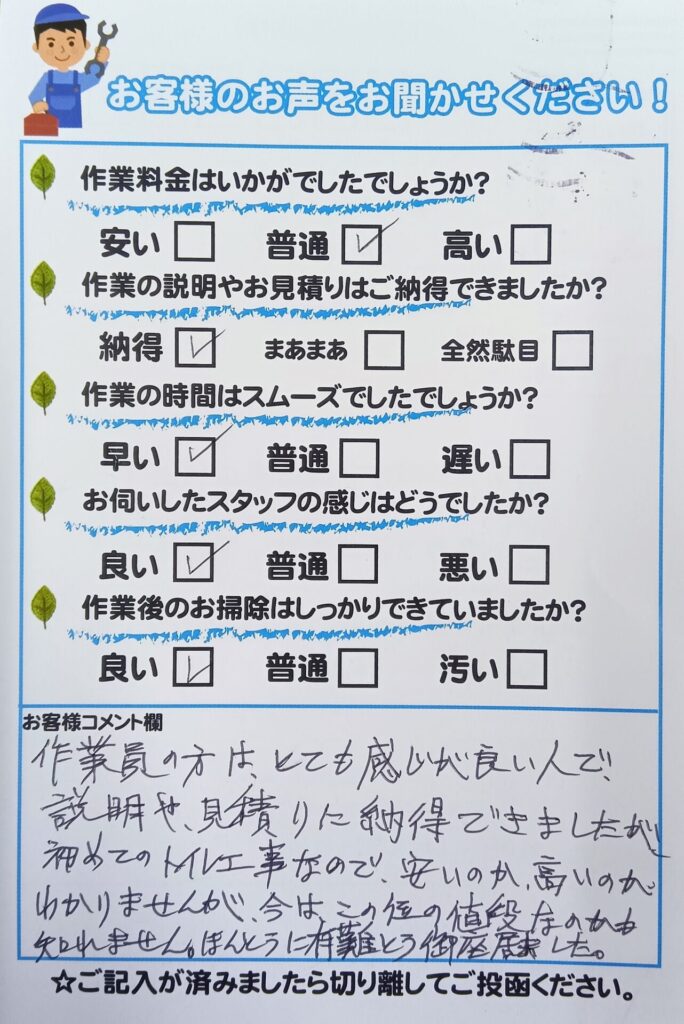 お客様のお声をお聞かせください！
作業料金はいかがでしたでしょうか？
安い 普通 高い
作業の説明やお見積りはご納得できましたか？
納得 まあまあ 全然駄目
作業の時間はスムーズでしたでしょうか？
早い 普通 遅い
お伺いしたスタッフの感じはどうでしたか？
良い 普通 悪い
作業後のお掃除はしっかりできていましたか？
良い 普通 汚い
お客様コメント欄
作業員の方は、とても感じが良い人で、
説明や、見積りに納得できましたが、
初めてのトイレ工事なので、安いのか、高いのか
わかりませんが、今は、この位の値段なのかも
知れません。ほんとうに有難とう御座居ました。
☆ご記入が済みましたら切り離してご投函ください。